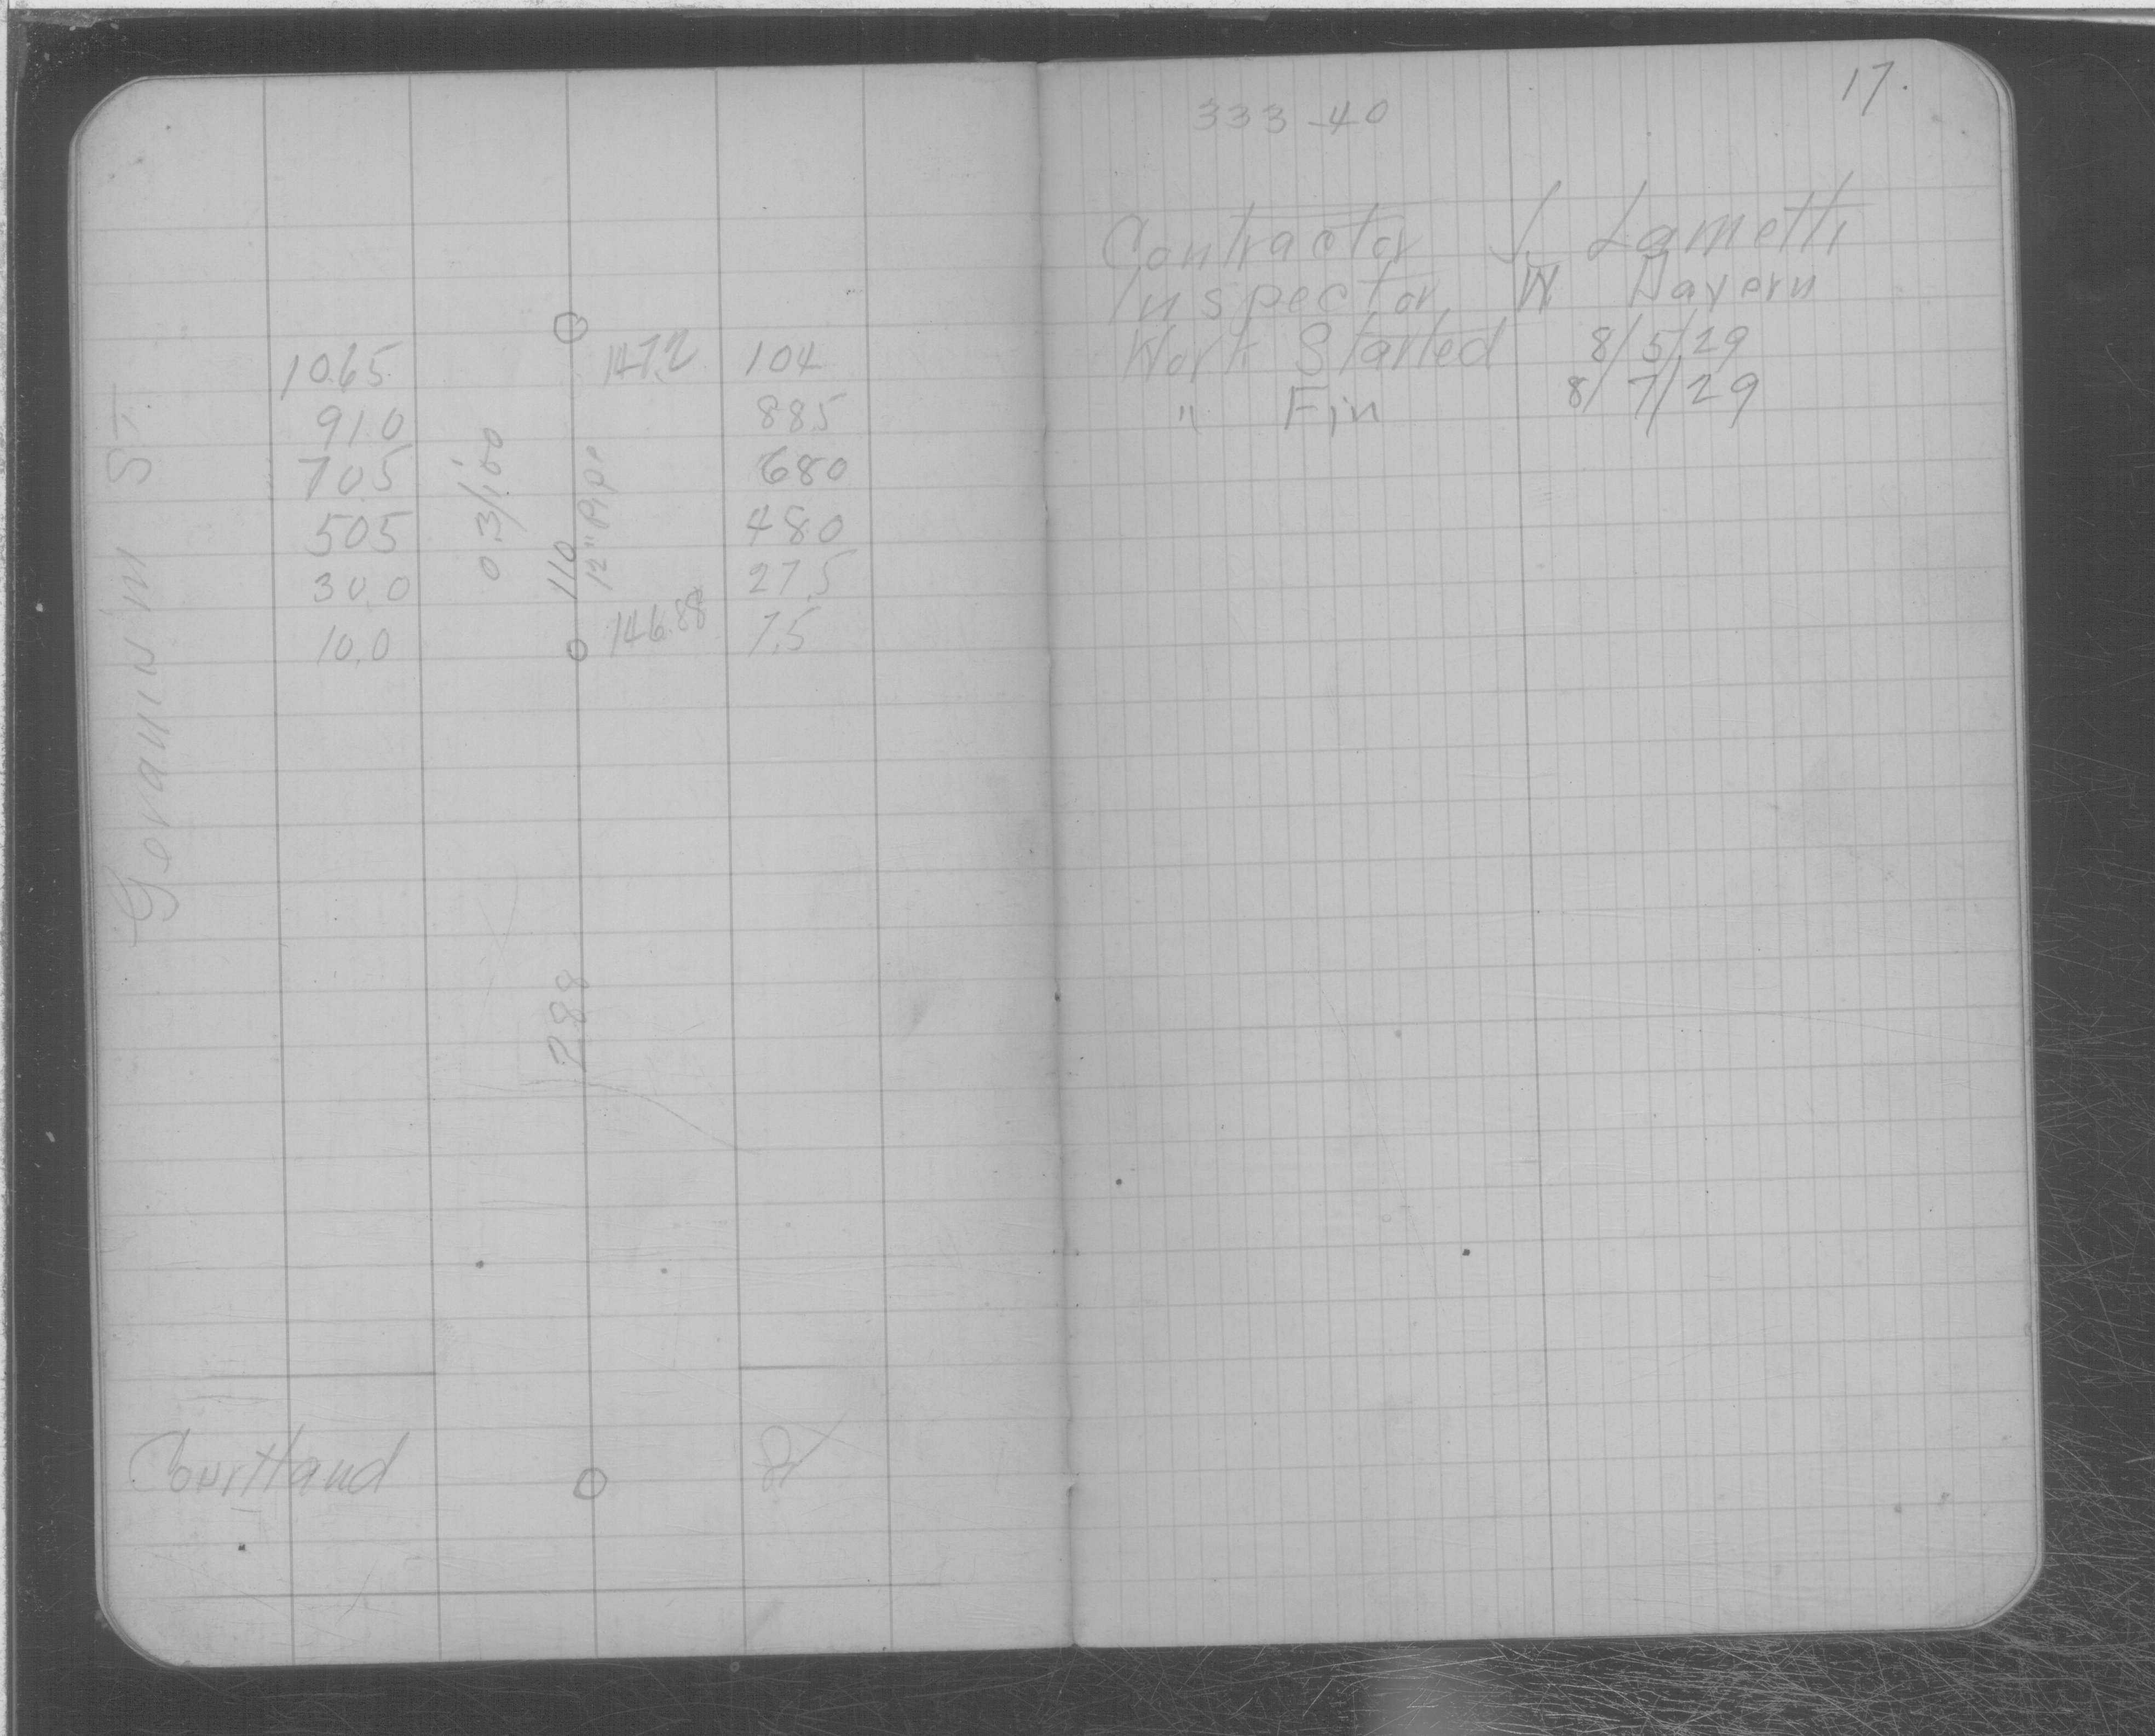 Geranium ST
106.5 147.2 104
91.0 88.5
70.5 68.0
50.5 0.3/100 12" Pipe 48.0
30.0 110 27.5
10.0 146.88 7.5
288
Courtland
17.
333-40
Contractor J. Lametti
Inspector W Davern
Work Started 8/5/29
" Fin 8/7/29